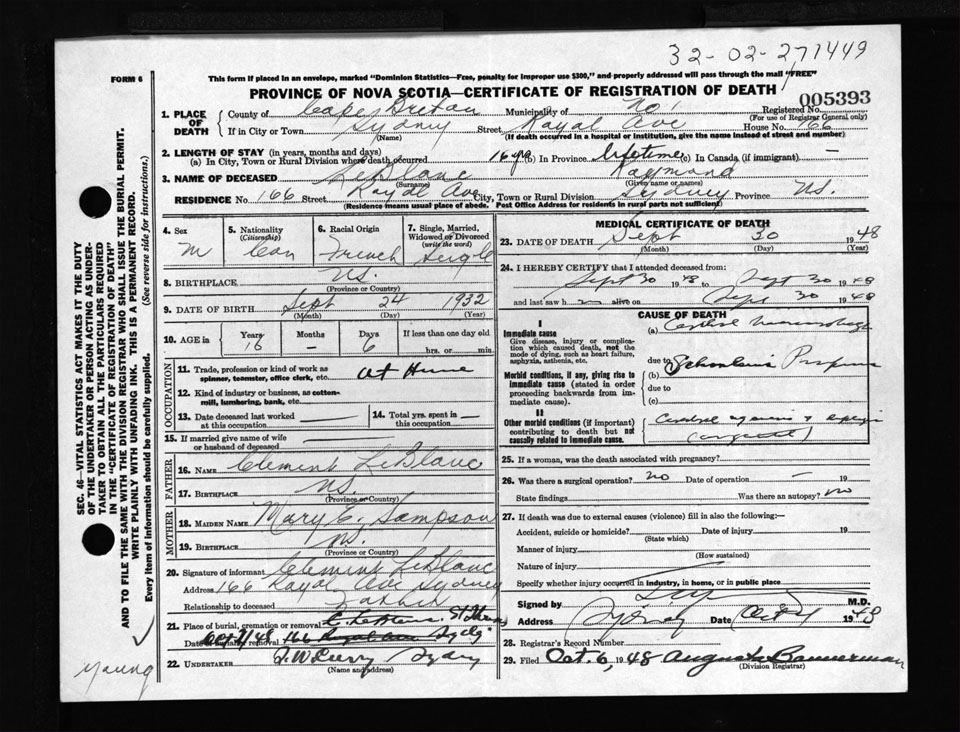 32-02-271449
FORM 6
This form if placed in an envelope, marked "Dominion Statistics—Free, penalty for improper use $300," and properly addressed will pass through the mail "FREE"
PROVINCE OF NOVA SCOTIA—CERTIFICATE OF REGISTRATION OF DEATH
005393
1. PLACE OF DEATH
County of Cape Breton Municipality of No. Registered No.
(For use of Registrar General only)
If in City or Town Sydney Street Royal Ave House No. 166
(Name) (If death occurred in a hospital or institution, give the name instead of street and number)
2. LENGTH OF STAY (in years, months and days)
(a) In City, Town or Rural Division where death occurred 16 yrs (b) In Province lifetime (c) In Canada (if immigrant) —
3. NAME OF DECEASED LeBlanc Raymond
(Surname) (Given name or names)
RESIDENCE No. 166 Street Royal Ave City, Town or Rural Division Sydney Province N.S.
(Residence means usual place of abode. Post Office Address for residents in rural parts not sufficient)
4. Sex M
5. Nationality (Citizenship) Can
6. Racial Origin French
7. Single, Married, Widowed or Divorced (write the word) Single
8. BIRTHPLACE N.S.
(Province or Country)
9. DATE OF BIRTH Sept 24 1932
(Month) (Day) (Year)
10. AGE in Years 16 Months — Days 6 If less than one day old
hrs. or min.
OCCUPATION
11. Trade, profession or kind of work as spinner, teamster, office clerk, etc. At Home
12. Kind of industry or business, as cotton-mill, lumbering, bank, etc.
13. Date deceased last worked at this occupation —
14. Total yrs. spent in this occupation —
15. If married give name of wife or husband of deceased
FATHER
16. NAME Clement LeBlanc
17. BIRTHPLACE N.S.
(Province or Country)
MOTHER
18. MAIDEN NAME Mary E. Sampson
19. BIRTHPLACE N.S.
(Province or Country)
20. Signature of informant Clement LeBlanc
Address 166 Royal Ave Sydney
Relationship to deceased Father
21. Place of burial, cremation or removal
Date of burial or removal Oct 2/48
22. UNDERTAKER
(Name and address)
MEDICAL CERTIFICATE OF DEATH
23. DATE OF DEATH Sept 30 1948
(Month) (Day) (Year)
24. I HEREBY CERTIFY that I attended deceased from:
Sept 30 1948 to Sept 30 1948
and last saw h im alive on Sept 30 1948
CAUSE OF DEATH
I
Immediate cause
Give disease, injury or complication which caused death, not the mode of dying, such as heart failure, asphyxia, asthenia, etc.
(a) Cerebral
due to
Morbid conditions, if any, giving rise to immediate cause (stated in order proceeding backwards from immediate cause).
(b)
due to
(c)
II
Other morbid conditions (if important) contributing to death but not causally related to immediate cause.
25. If a woman, was the death associated with pregnancy?
26. Was there a surgical operation? no Date of operation — 19
State findings Was there an autopsy? no
27. If death was due to external causes (violence) fill in also the following:—
Accident, suicide or homicide? Date of injury 19
(State which)
Manner of injury
(How sustained)
Nature of injury
Specify whether injury occurred in industry, in home, or in public place
Signed by M.D.
Address Sydney Date 1948
28. Registrar's Record Number
29. Filed Oct. 6, 1948 Augusta Bannerman
(Division Registrar)
SEC. 46—VITAL STATISTICS ACT MAKES IT THE DUTY
OF THE UNDERTAKER OR PERSON ACTING AS UNDER-
TAKER TO OBTAIN ALL THE PARTICULARS REQUIRED
IN THE "CERTIFICATE OF REGISTRATION OF DEATH"
AND TO FILE THE SAME WITH THE DIVISION REGISTRAR WHO SHALL ISSUE THE BURIAL PERMIT.
WRITE PLAINLY WITH UNFADING INK. THIS IS A PERMANENT RECORD.
Every item of information should be carefully supplied. (See reverse side for instructions.)
young